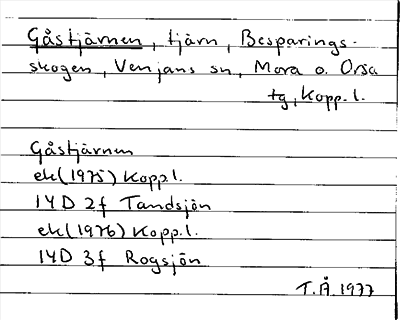 Gåstjärnen, tjärn, Besparings-
skogen, Venjans sn, Mora o. Orsa
tg, Kopp. l.
Gåstjärnen
ek (1975) Kopp l.
14D 2f Tandsjön
ek (1976) Kopp. l.
14D 3f Rogsjön
T.Å. 1977